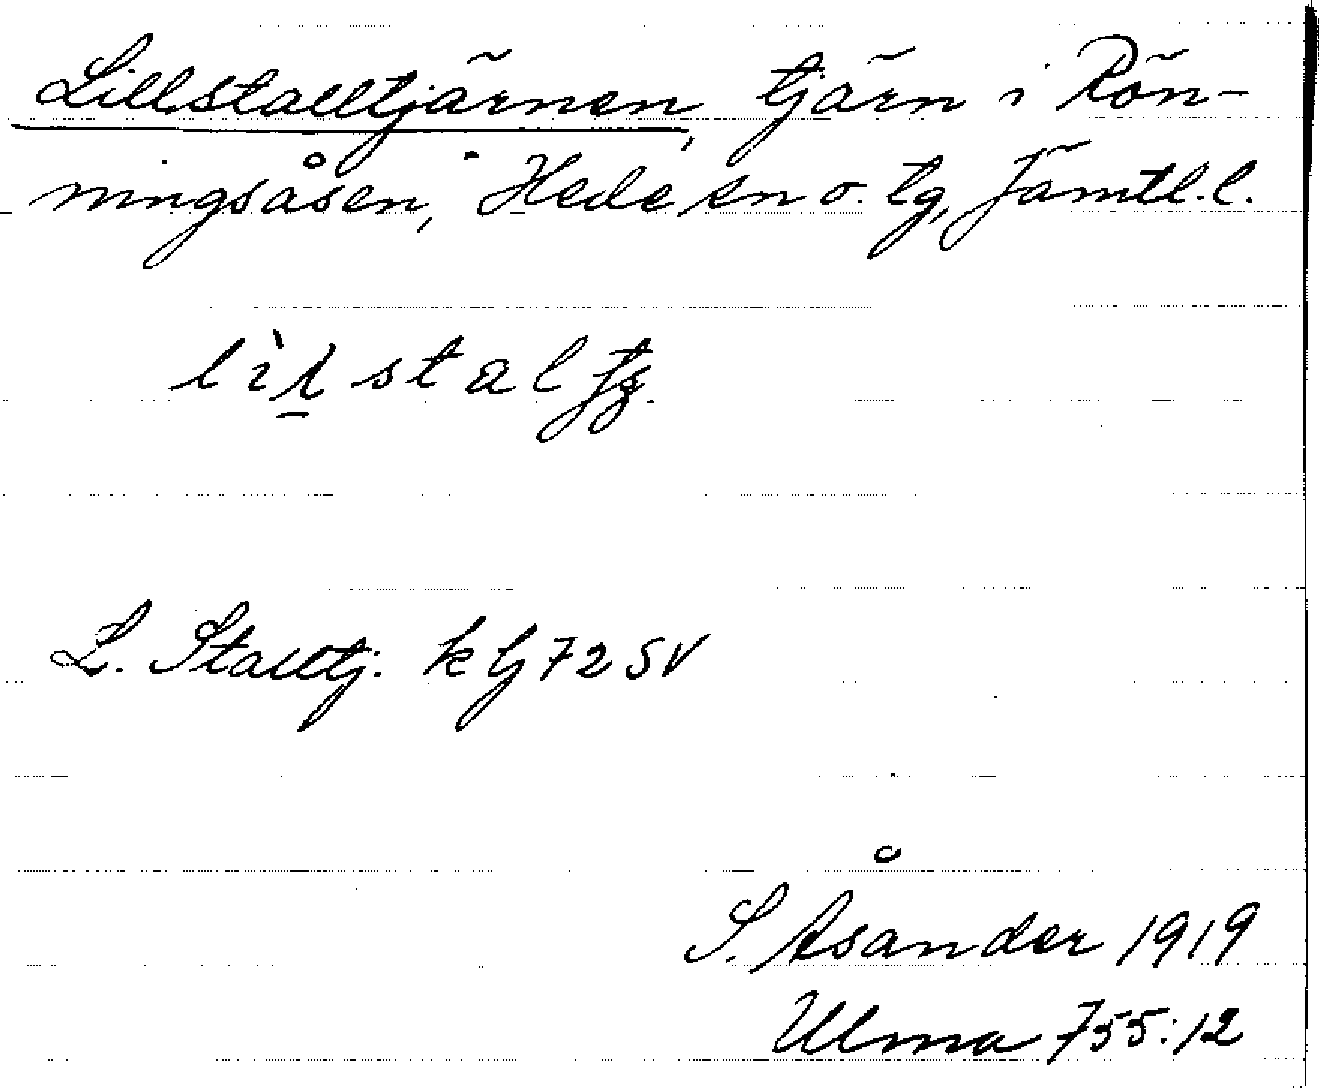 Lillstalltjärnen, tjärn i Rön-
ningsåsen, Hede sn o. tg, Jämtl. l.
L. Stalltj. kg 72 SV
S. Åsander 1919
Ulma 755:12